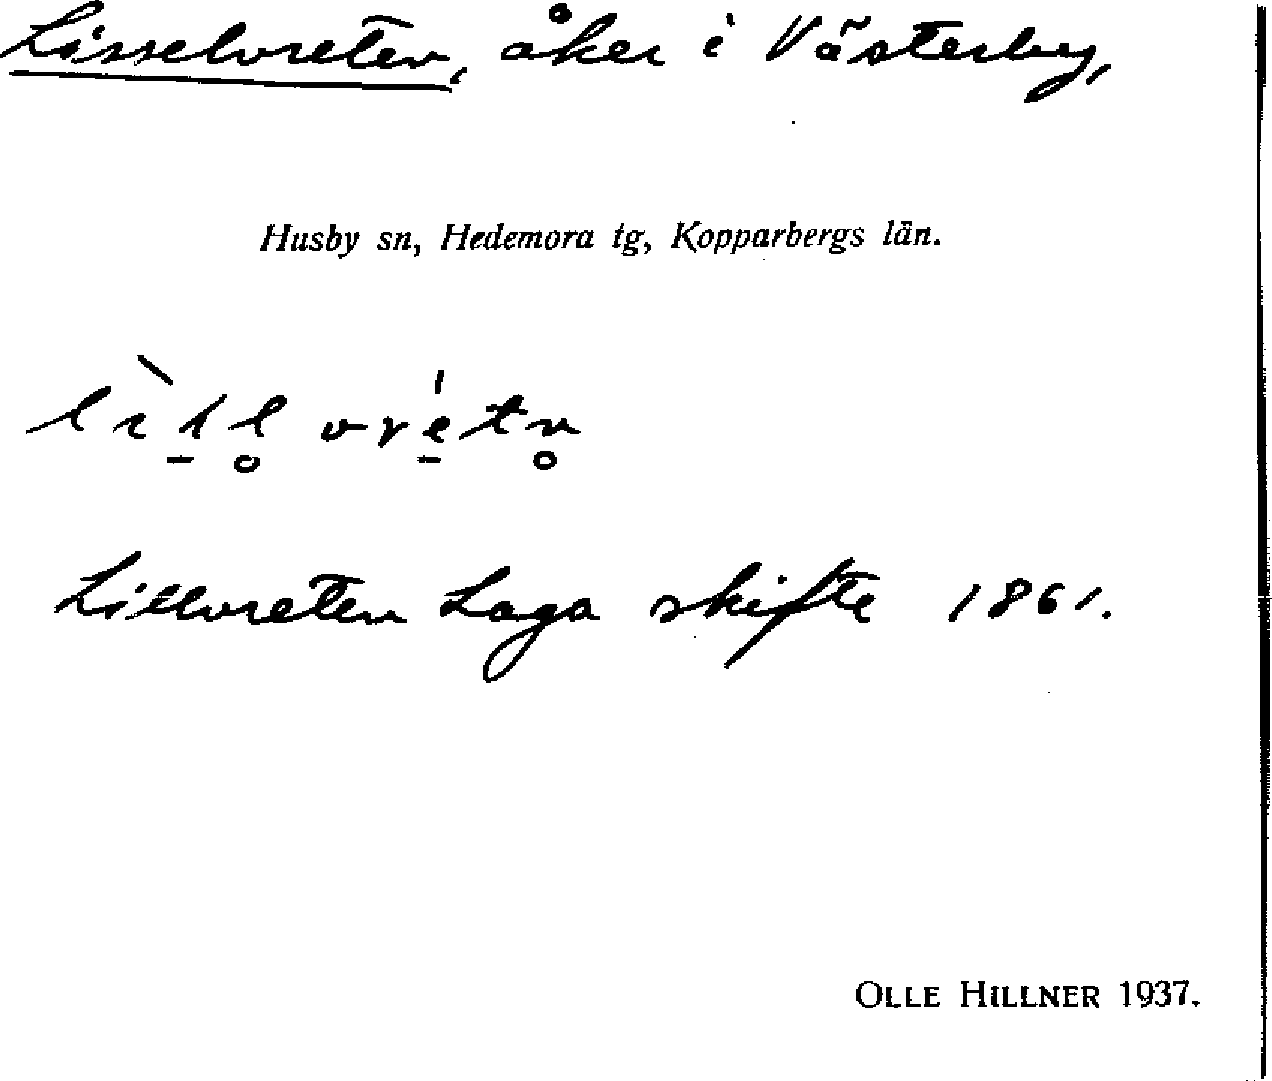 Lisselvreten, åker i Västerby,
Husby sn, Hedemora tg, Kopparbergs län.
Lillvreten Laga skifte 1861.
OLLE HILLNER 1937.